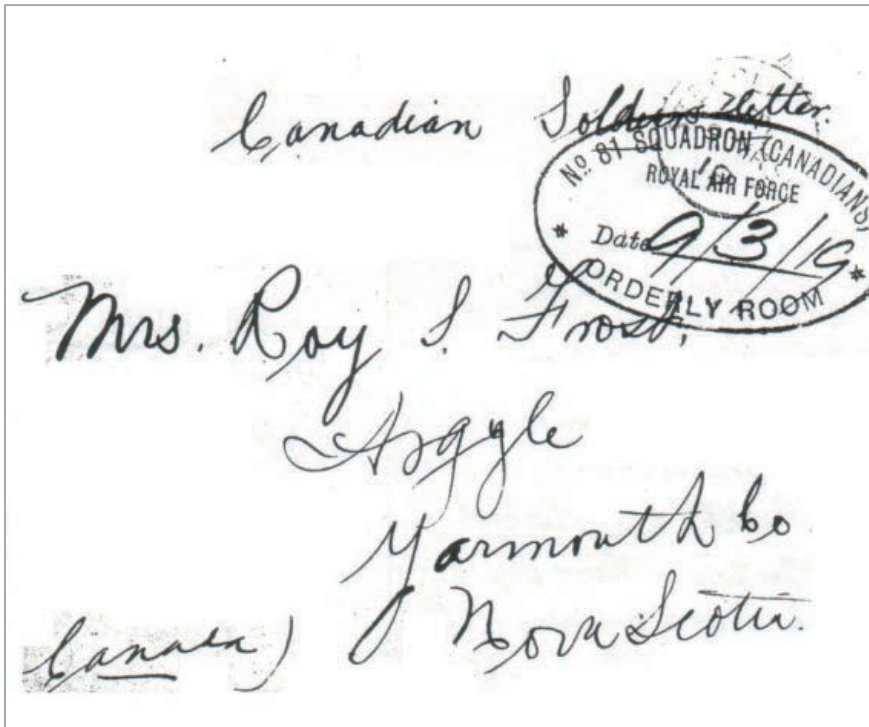 Canadian Soldiers letter.
No 81 SQUADRON (CANADIANS)
ROYAL AIR FORCE
* Date 9/3/19 *
ORDERLY ROOM
Mrs. Roy S. Frost,
Argyle
Yarmouth Co
Nova Scotia.
Canada)